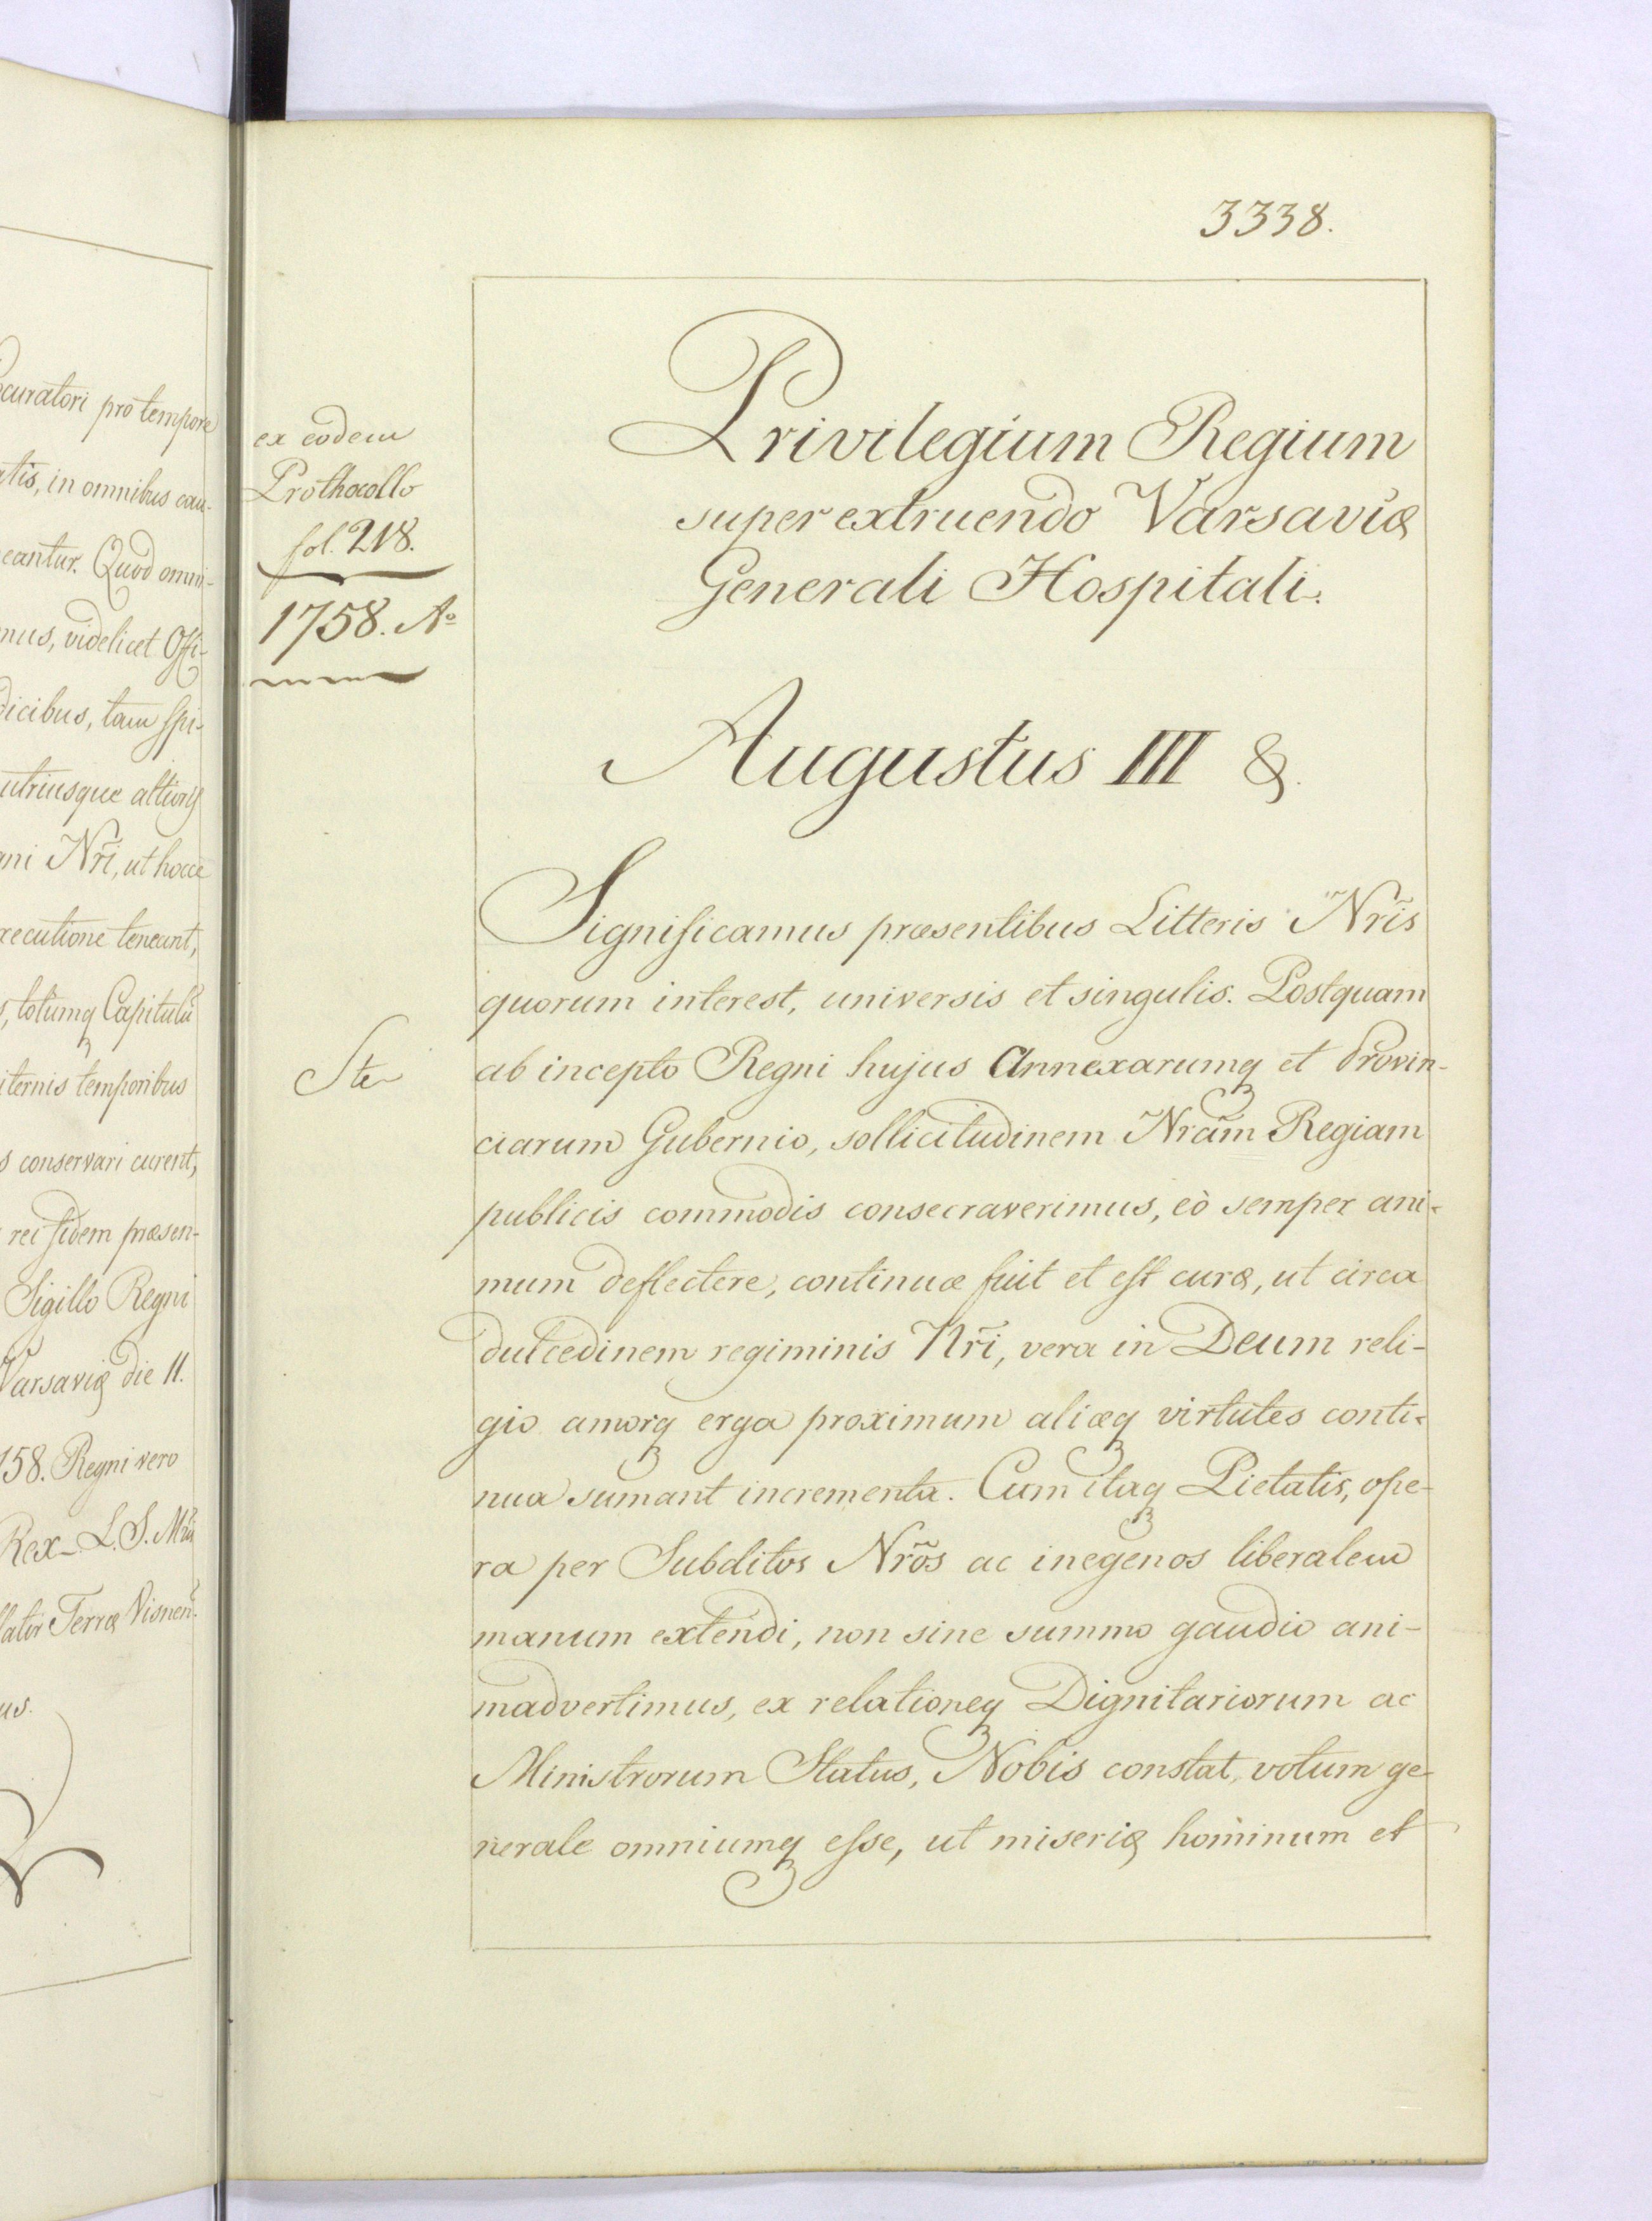 curatori pro tempore
atis, in omnibus cau-
eantur. Quod omni-
mus, videlicet Offi-
dicibus, tam Spi-
utriusque altioris
ni Nr̃i, ut hocce
xecutione teneant,
s, totumq Capitulũ
iternis temporibus
s conservari curent,
rei fidem præsen-
Sigillo Regni
Varsaviæ die 11.
158. Regni vero
Rex_ L. S.
lator Terræ Visnen̄.
us.
3338.
ex eodem
Prothocollo
fol. 218.
1758. Aº
Privilegium Regium
super extruendo Varsaviæ
Generali Hospitali.
Augustus III &.
Significamus præsentibus Litteris Nr̃is
quorum interest, universis et singulis. Postquam
ab incepto Regni hujus Annexarumq et Provin-
ciarum Gubernio, sollicitudinem Nrãm Regiam
publicis commodis consecraverimus, eò semper ani-
mum deflectere, continuæ fuit et est curæ, ut circa
dulcedinem regiminis Nr̃i, vera in Deum reli-
gio amorq erga proximum aliæq virtutes conti-
nua sumant incrementa. Cum itaq Pietatis, ope-
ra per Subditos Nrõs ac inegenos liberalem
manum extendi, non sine summo gaudio ani-
madvertimus, ex relationeq Dignitariorum ac
Ministrorum Status, Nobis constat, votum ge-
nerale omniumq esse, ut miseriæ hominum et